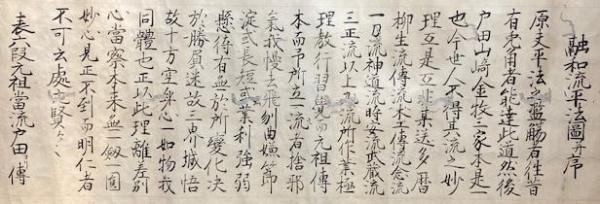 融和流平法圖并序
原夫平法之濫觴者往昔
有兎用者能達此道然後
戸田山崎金牧三家本是一
也今世人不得其流之妙
理互是互非某送多暦
柳生流傳流木工傳流念流
一刀流神道流時女流武蔵流
三正流以上之流所作業極
理教行習覺而元祖傳
本而予所立一流者捨邪
氣我慢去飛刎曲嫌節
定式長短或業利強弱
懸待有無於所變化决
於勝負迷故三界城悟
故十方空氣心一如物我
同體也正以此理離差別
心當察本来無一劔一圓
妙心見正不到而明仁者
不可云處之賢
表六段元祖當流戸田傳